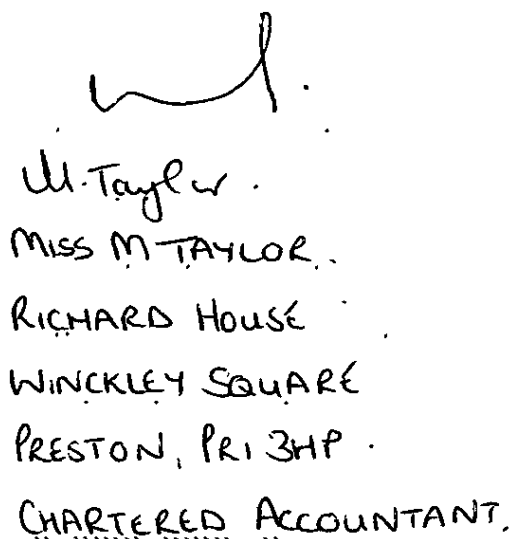 M. Taylor.
MISS M TAYLOR.
RICHARD HOUSE
WINCKLEY SQUARE
PRESTON, PR1 3HP.
CHARTERED ACCOUNTANT.